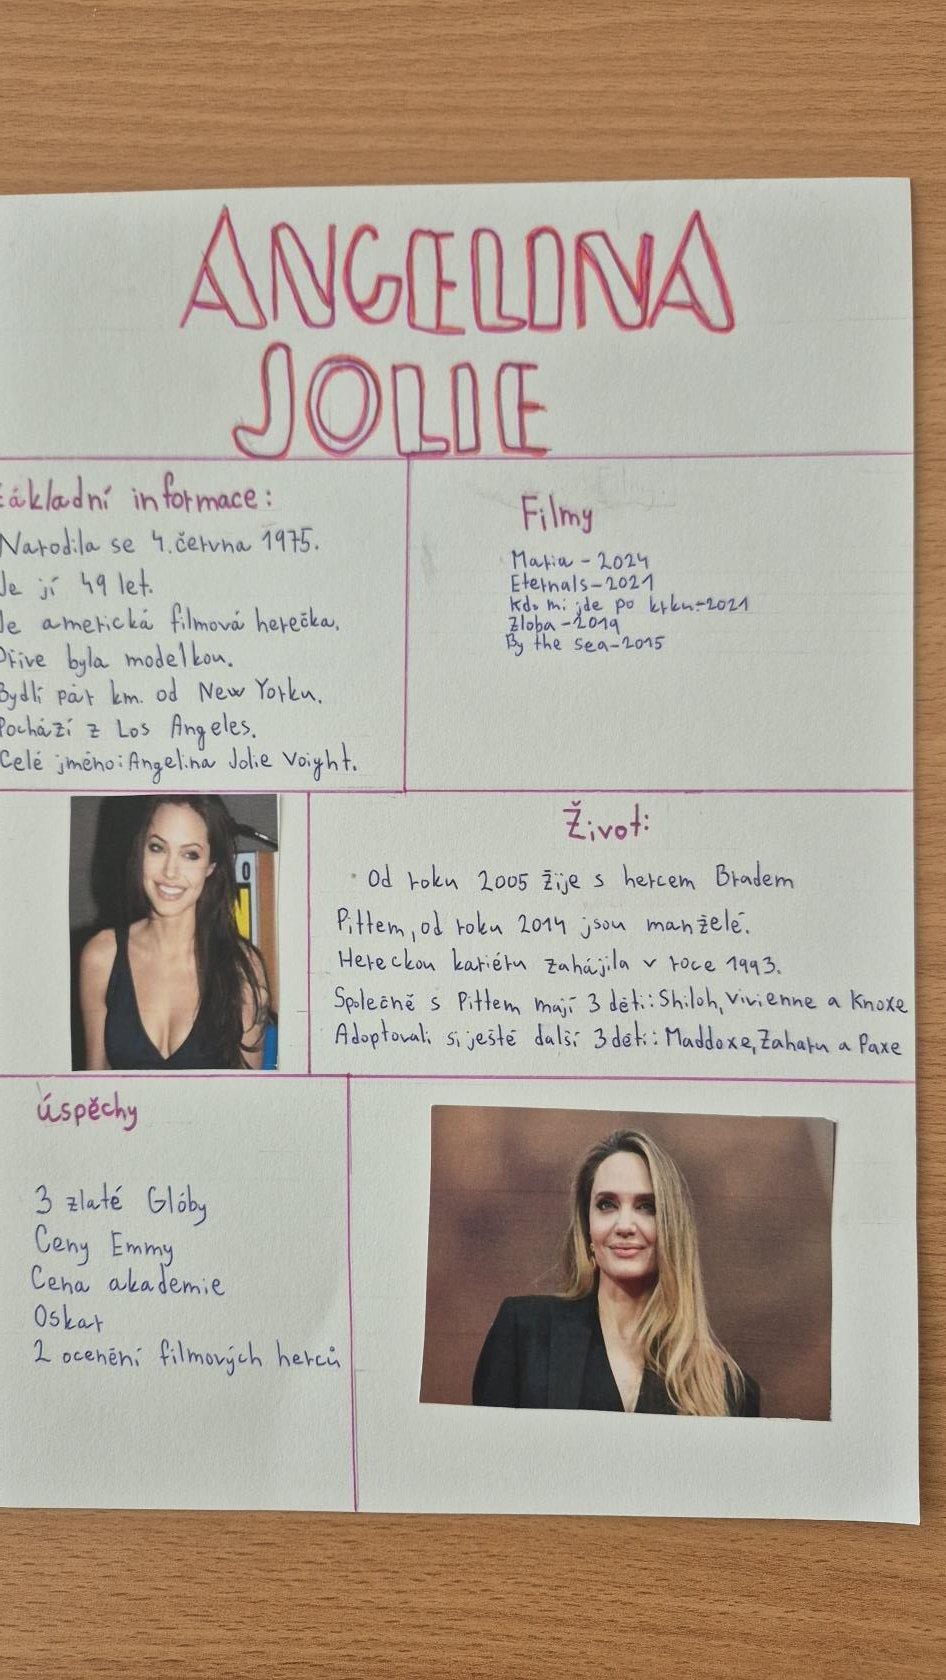 ANGELINA
JOLIE
základní informace:
Narodila se 4. června 1975.
Je jí 49 let.
Je americká filmová herečka.
Dříve byla modelkou.
Bydlí pár km. od New Yorku.
Pochází z Los Angeles.
Celé jméno: Angelina Jolie Voight.
Filmy
Maria - 2024
Eternals - 2021
Kdo mi jde po krku - 2021
Zloba - 2019
By the sea - 2015
Život:
Od roku 2005 žije s hercem Bradem
Pittem, od roku 2014 jsou manželé.
Hereckou kariéru zahájila v roce 1993.
Společně s Pittem mají 3 děti: Shiloh, Vivienne a Knoxe
Adoptovali si ještě další 3 děti: Maddoxe, Zaharu a Paxe
úspěchy
3 zlaté Glóby
Ceny Emmy
Cena akademie
Oskar
2 ocenění filmových herců